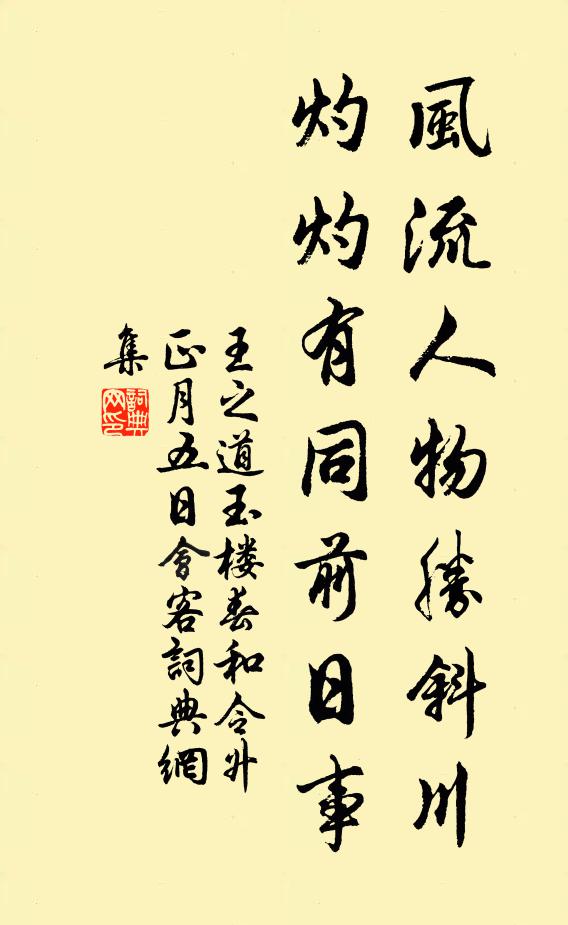 風流人物勝斜川
灼灼有同前日事
王之道玉楼春和令升
正月五日會客詞典網
集
詞典
网印